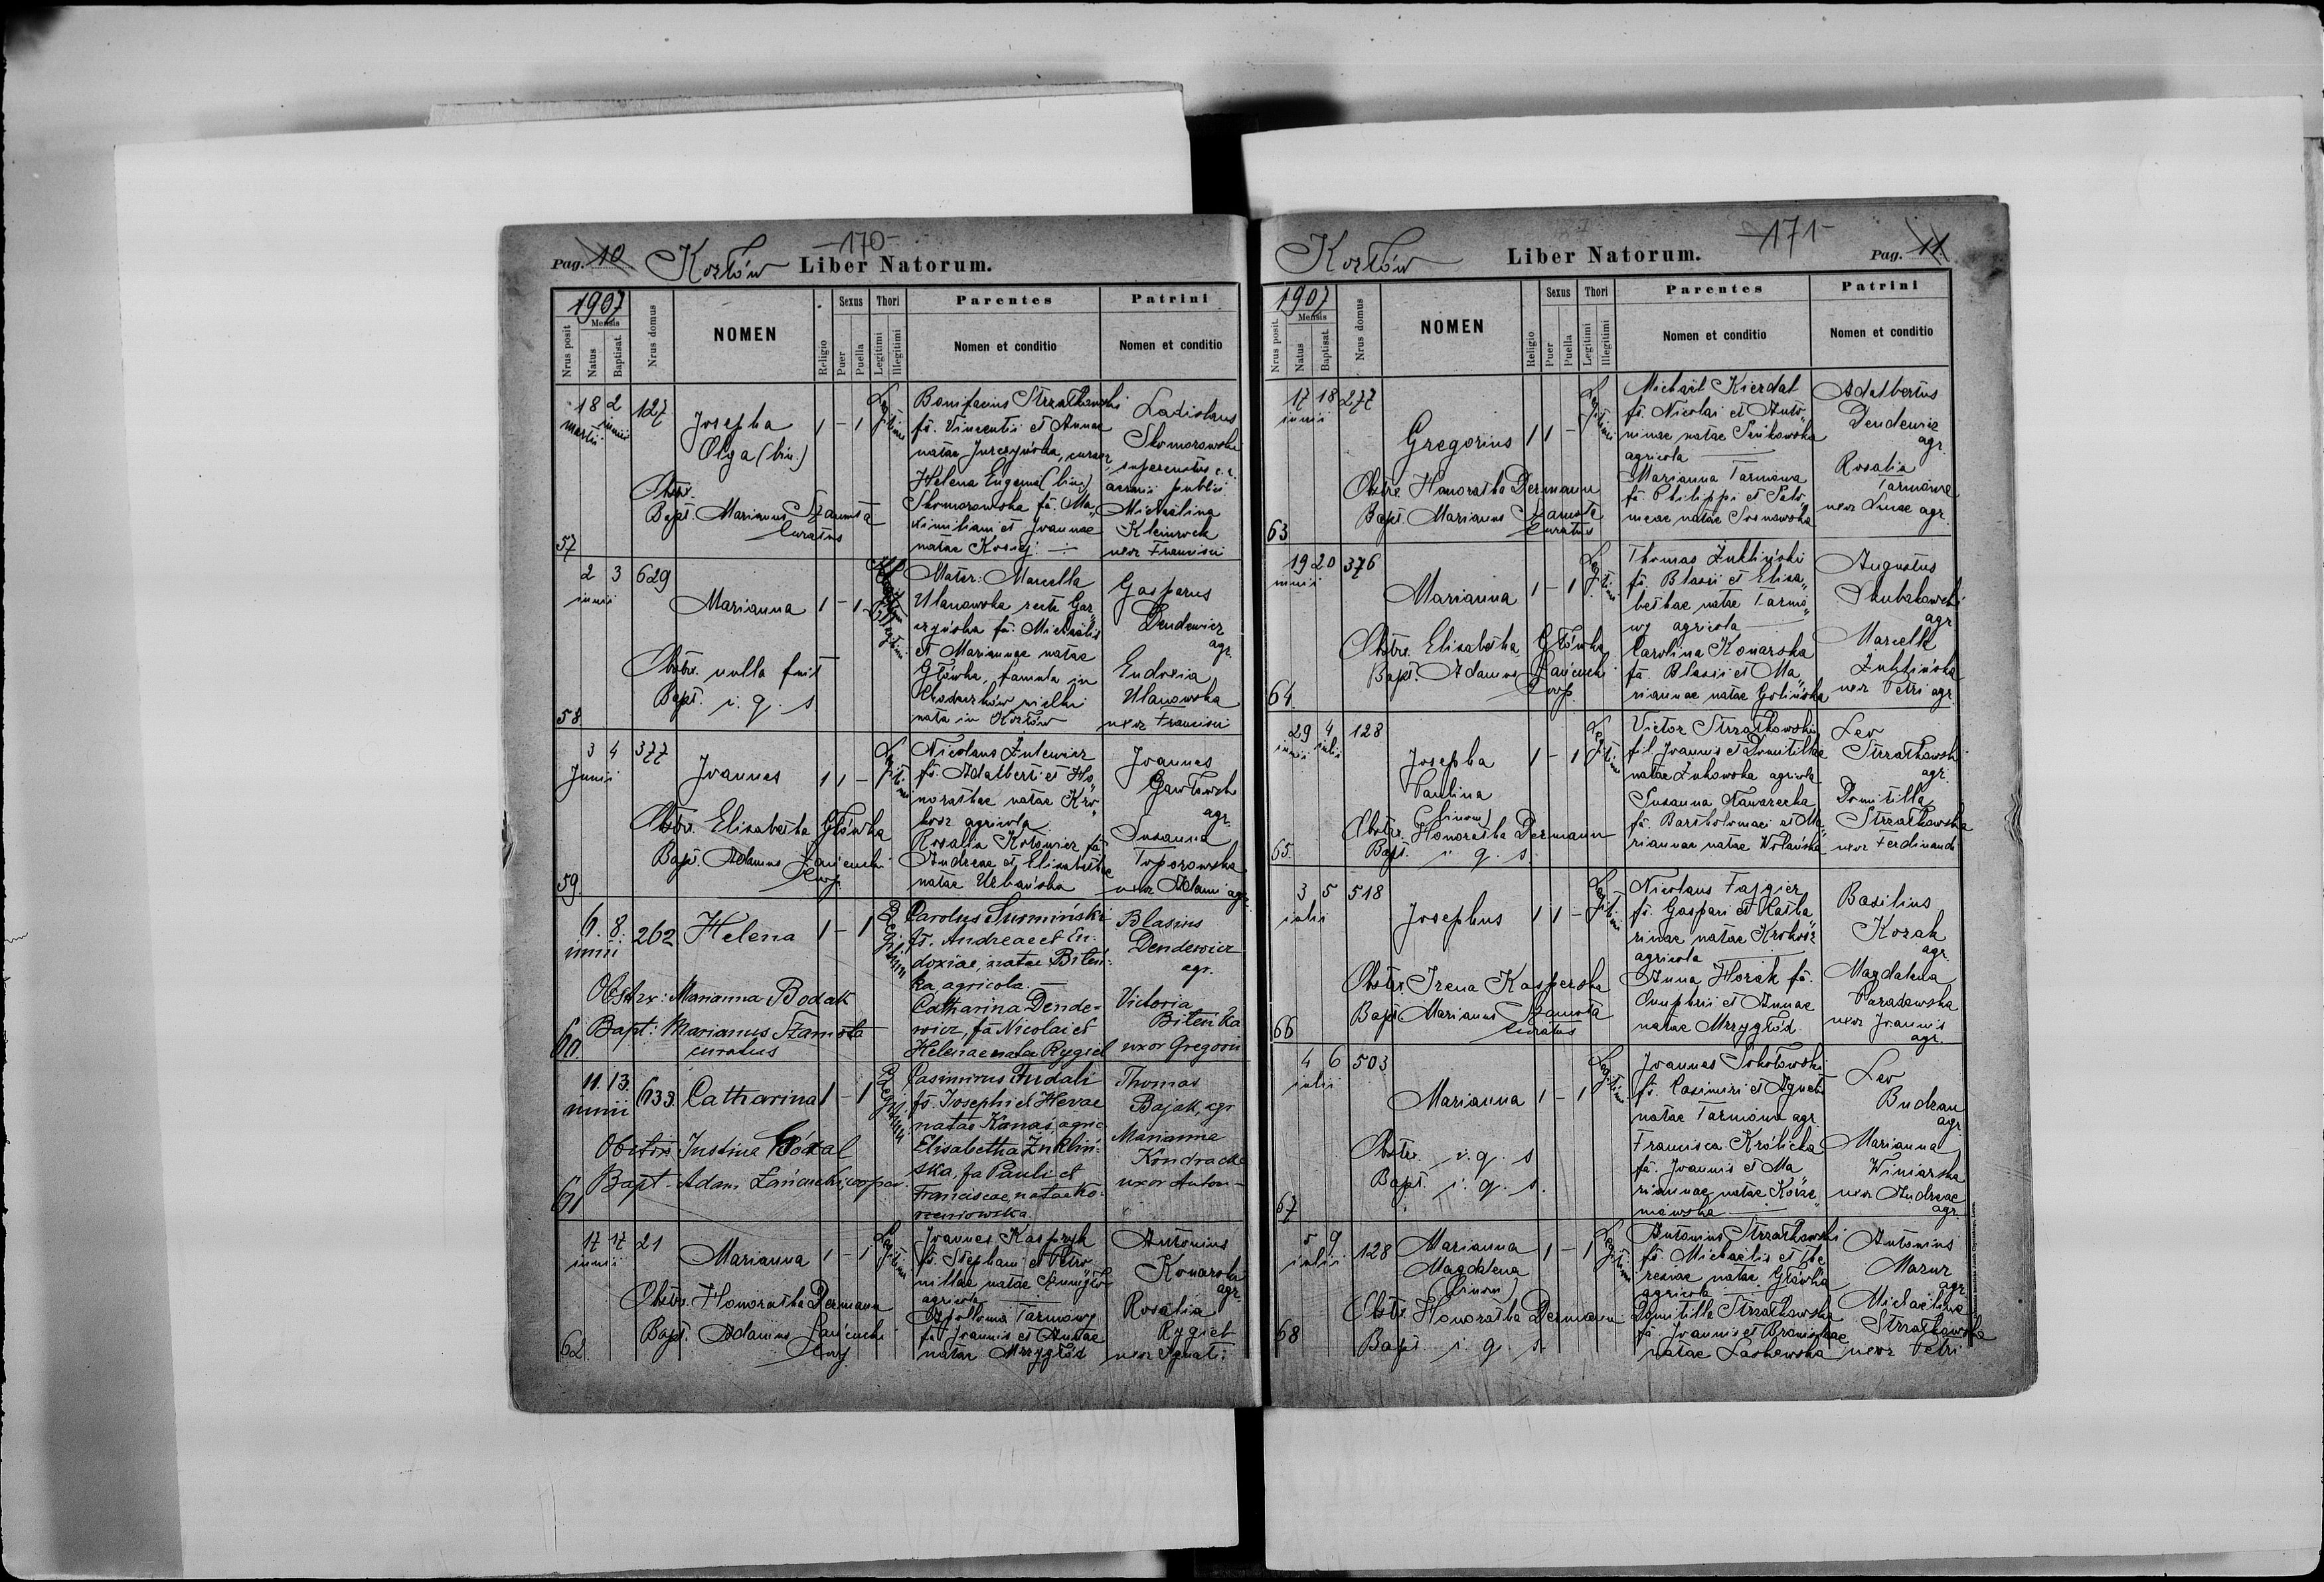 -170-
Pag. 10 Kozłów Liber Natorum.
1907
Mensis
Nrus posit
Natus
Baptisat.
Nrus domus
NOMEN
Religio
Sexus
Puer
Puella
Thori
Legitimi
Illegitimi
Parentes
Nomen et conditio
Patrini
Nomen et conditio
57
18 martii
2 junii
127
Josepha
Olga (bin.)
1 - 1
Legitimi
Obstr.
Bapt. Marianus Szamota
Curatus
Bonifacius Strzałkowski
fs. Vincentii et Annae
natae Jurczyńska
Helena Eugenia (bin)
Skomorowska fa. Ma„
ximiliani et Joannae
natae Kosiej
Ladislaus
Skomorowski
Michaëlina
Kleinrock
uxor Francisci
58
2 3 629
iunii
Marianna
1 - 1
Illegitimi
Obstr. nulla fuit
Bapt. i. q. s
Mater: Marcella
Ulanowska recte Gar„
czyńska fa. Michaëlis
et Mariannae natae
Główka, famula in
Chodaczków wielki
nata in Kozłów
Gasparus
Dendewicz
agr.
Eudoxia
Ulanowska
uxor Francisci
59
3 4 377
Junii
Joannes
1 1 -
Legitimi
Obstr. Elisabetha Główka
Bapt. Adamus Łańcucki
Coop
Nicolaus Zulewicz
fs. Adalberti et Ho„
norathae natae Kro„
kosz agricola
Rosalia Kotowicz fa
Andreae et Elisabethae
natae Urbańska
Joannes
Gawłowski
agr.
Susanna
Toporowska
uxor Adami agr.
60
6. 8. 262
iunii
Helena
1 - 1
Legitimi
Obstrx: Marianna Bodak
Bapt: Marianus Szamota
curatus
Carolus Surmiński
fs. Andreae et Eu.
doxiae, natae Biteń-
ka, agricola. —
Catharina Dende-
wicz, fa Nicolai et
Helenae natae Rygiel
Blasius
Dendewicz
agr.
Victoria
Biteńka
uxor Gregorii
61
11. 13. 633.
iunii
Catharina
1 - 1
Legitimi
Obstrx. Justina Góral
Bapt. Adam Łańcucki, cooper.
Casimirus Fudali
fs. Josephi et Hevae
natae Kanas, agric
Elisabetha Żukliń-
ska, fa Pauli et
Franciscae, natae Ko-
rzeniowska.
Thomas
Bajak, agr
Marianna
Kondracka
uxor Anton-
62
17 17 21
iunii
Marianna
1 - 1
Legitimi
Obstr. Honoratha Dermann
Bapt. Adamus Łańcucki
Coop
Joannes Kasprzyk
fs. Stephani et Petro„
nillae natae
agricola
Apollonia Tarnowy
fa Joannis et Annae
natae Mrzygłód
Antonius
Konarski
agr.
Rosalia
Rygiel
uxor Ignati.
-171-
Kozłów Liber Natorum. Pag. 11
1907
Mensis
Nrus posit.
Natus
Baptisat.
Nrus domus
NOMEN
Religio
Sexus
Puer
Puella
Thori
Legitimi
Illegitimi
Parentes
Nomen et conditio
Patrini
Nomen et conditio
63
17 18 277
iunii
Gregorius
1 1 -
Legitimi
Obstr. Honoratha Dermann
Bapt. Marianus Szamota
Curatus
Michaël Kierdal
fs. Nicolai et Anto„
ninae natae
agricola
Marianna Tarnowa
fa Philippi et Salo„
meae natae Sosnowska
Adalbertus
Dendewicz
agr.
Rosalia
Tarnowa
uxor Lucae agr.
64
19 20 376
iunii
Marianna
1 - 1
Legitimi
Obstr. Elisabetha Główka
Bapt. Adamus Łańcucki
Coop.
Thomas Żukliński
fs. Blasii et Elisa„
bethae natae Tarno„
wy agricola
Carolina Konarska
fa. Blasii et Ma„
riannae natae Golińska
Augustus
Skubakowski
agr
Marcella
Żuklińska
uxor Petri agr
65.
29 iunii
4 iulii
128
Josepha
Paulina
(binom)
1 - 1
Legitimi
Obstr. Honoratha Dermann
Bapt. i q. s.
Victor Strzałkowski
fil. Joannis et Domitillae
natae Żukowska agricola
Susanna Nawarecka
fa. Bartholomaei et Ma„
riannae natae Wolańska
Leo
Strzałkowski
agr.
Domitilla
Strzałkowska
uxor Ferdinandi
66
3 5 518
iulii
Josephus
1 1 -
Legitimi
Obstr. Irena Kasperska
Bapt. Marianus Szamota
Curatus
Nicolaus Fajgier
fs. Gaspari et Katha„
rinae natae Krokosz
agricola
Anna Horak fa.
Onuphrii et Annae
natae Mrzygłód
Basilius
Korak
agr.
Magdalena
Paradowska
uxor Joannis
agr.
67
4 6 503
iulii
Marianna
1 - 1
Legitimi
Obstr. i. q. s
Bapt. i. q. s.
Joannes Sokołowski
fs. Casimiri et Agnetis
natae Tarnowa agr.
Francisca Królicka
fa. Joannis et Ma„
riannae natae
Leo
Budzan
agr.
Marianna
Winiarska
uxor Andreae
agr.
68
5 9 128
iulii
Marianna
Magdalena
(binom)
1 - 1
Legitimi
Obstr. Honoratha Dermann
Bapt. i q. s
Antonius Strzałkowski
fs. Michaëlis et The„
resiae natae Główka
agricola
Domitilla Strzałkowska
fa. Joannis et Bronislae
natae Laskowska
Antonius
Mazur
agr
Michaëlina
Strzałkowska
uxor Petri